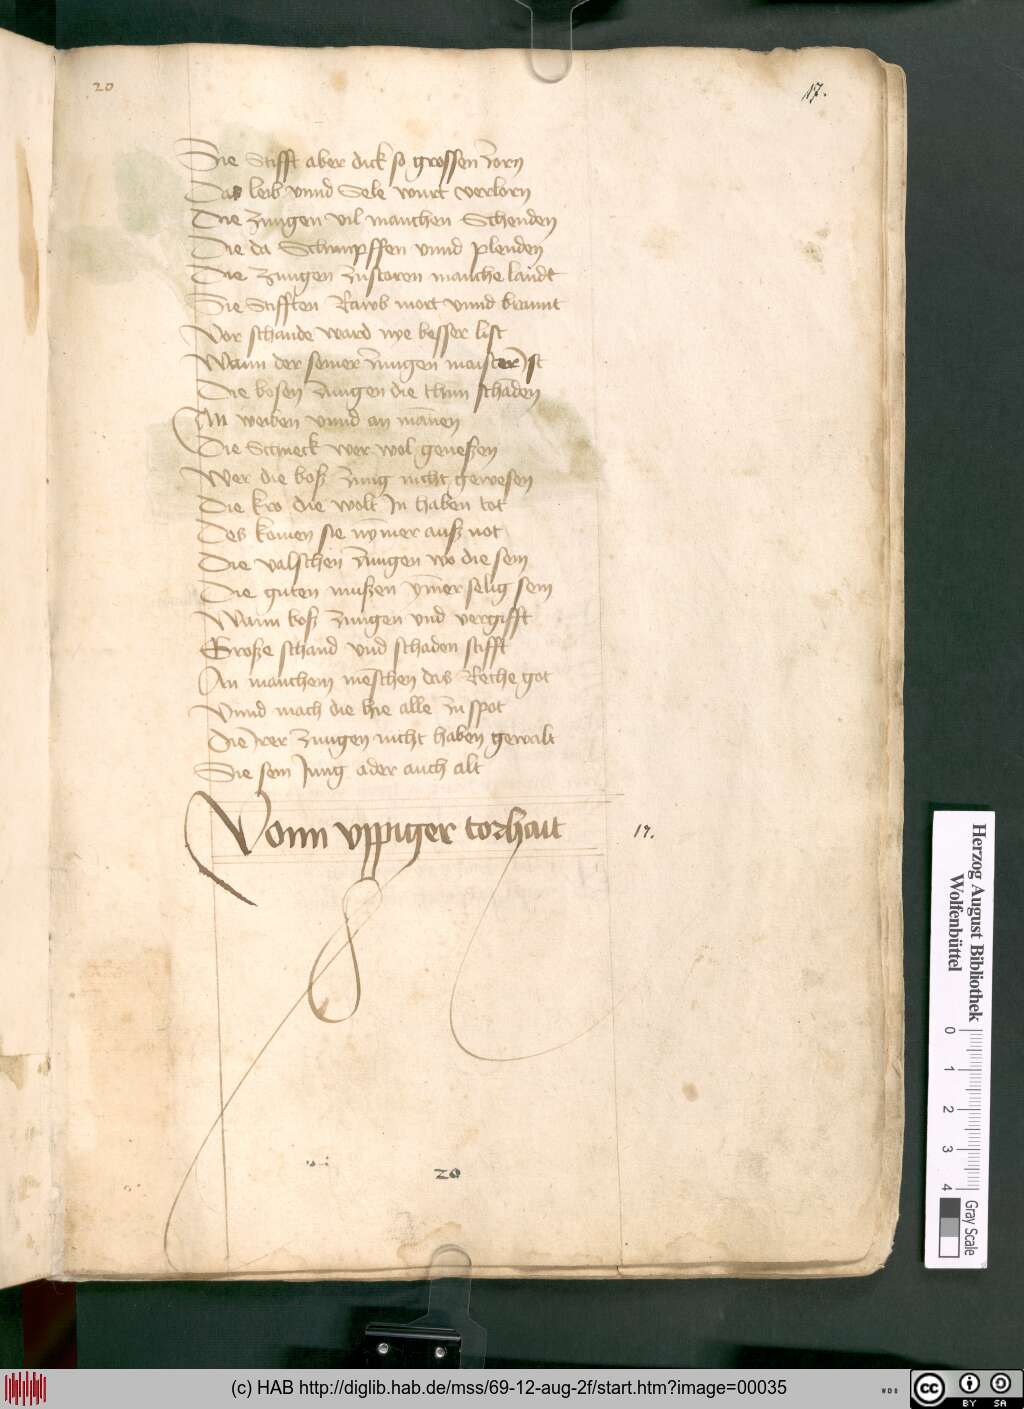 20
17.
Die Stifft aber dick so grossen zorn
Das leib vnnd Sele wurt verlorn
Die zungen vil manchen Schenden
Die da Schimpffen vnnd plenden
Die zungen zustoren manche landt
Die Stifften Rawb mort vnnd brannt
Vor schande ward nye besser list
Wann der seiner zungen maister ist
Die bosen zungen die thun schaden
An weiben vnnd an mānen
Die Schneck wer wol geneßen
Wer die boß zung nicht gewesen
Die kro die wolt In haben tot
Des komen sie nȳmer auß not
Die valschen zungen wo die sein
Die guten mußen ȳmer selig sein
Wann boß zungen vnd vergifft
Große schand vnd schaden stifft
An manchem mēschen das Reche got
Vnnd mach die hie alle zu spot
Die Irer zungen nicht haben gewalt
Sie sein Jung ader auch alt
Vonn vppiger torhait
17.
20
Herzog August Bibliothek
Wolfenbüttel
0 1 2 3 4
Gray Scale
(c) HAB http://diglib.hab.de/mss/69-12-aug-2f/start.htm?image=00035
WDB
cc
BY SA